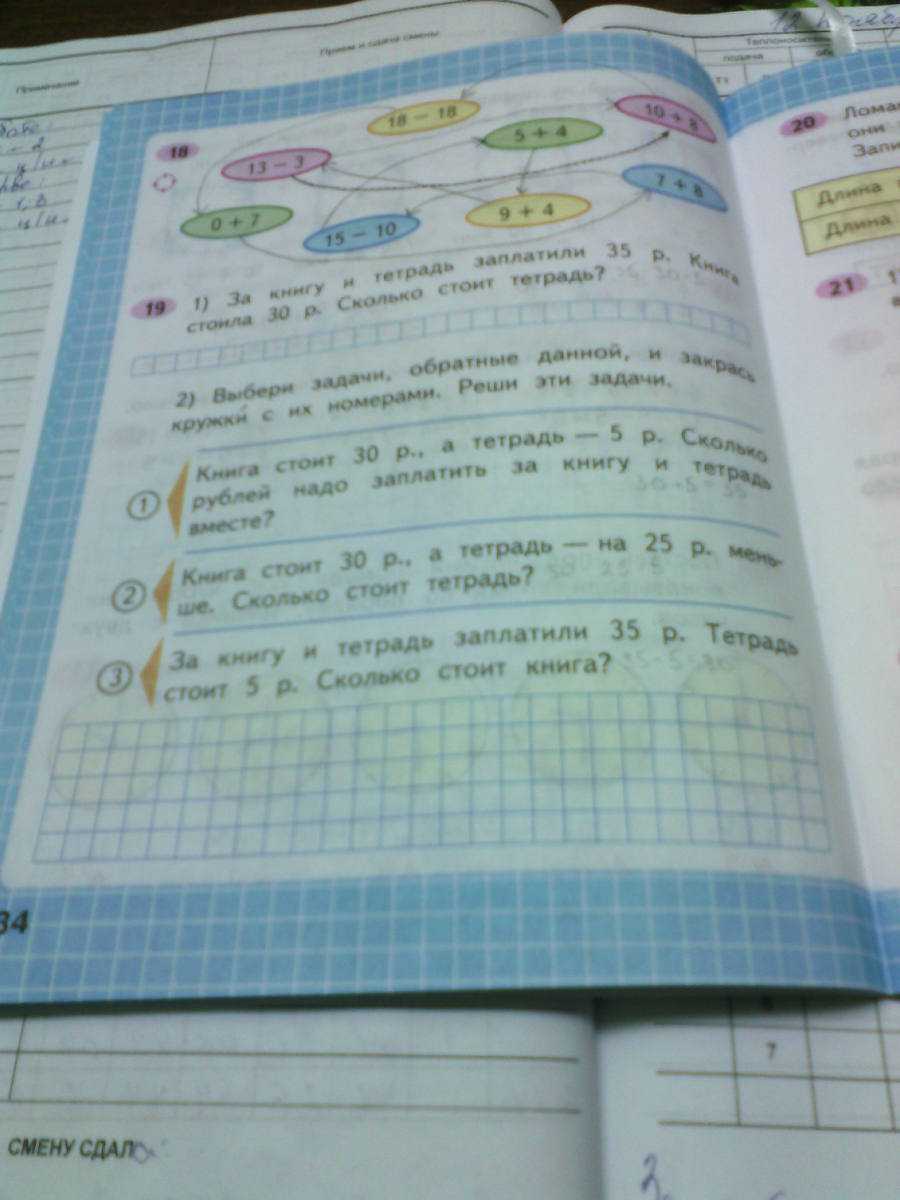 12
Прием и сдача смены
Примечание
Теплоноситель
подача
Т1
18
18 − 18
10 + 8
5 + 4
13 − 3
7 + 8
0 + 7
9 + 4
15 − 10
19 1) За книгу и тетрадь заплатили 35 р. Книга
стоила 30 р. Сколько стоит тетрадь?
2) Выбери задачи, обратные данной, и закрась
кружки́ с их номерами. Реши эти задачи.
1
Книга стоит 30 р., а тетрадь — 5 р. Сколько
рублей надо заплатить за книгу и тетрадь
вместе?
30+5=35
2
Книга стоит 30 р., а тетрадь — на 25 р. мень-
ше. Сколько стоит тетрадь?
3
За книгу и тетрадь заплатили 35 р. Тетрадь
стоит 5 р. Сколько стоит книга? 35-5=30
34
20
они
Запи
Длина
Длина
21
7
СМЕНУ СДАЛ